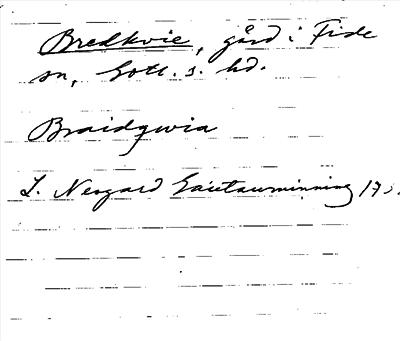 Bredkvie, gård i Fide
sn, Gotl. s. hd.
Braidqwia
L. Neogard Gautauminning 17